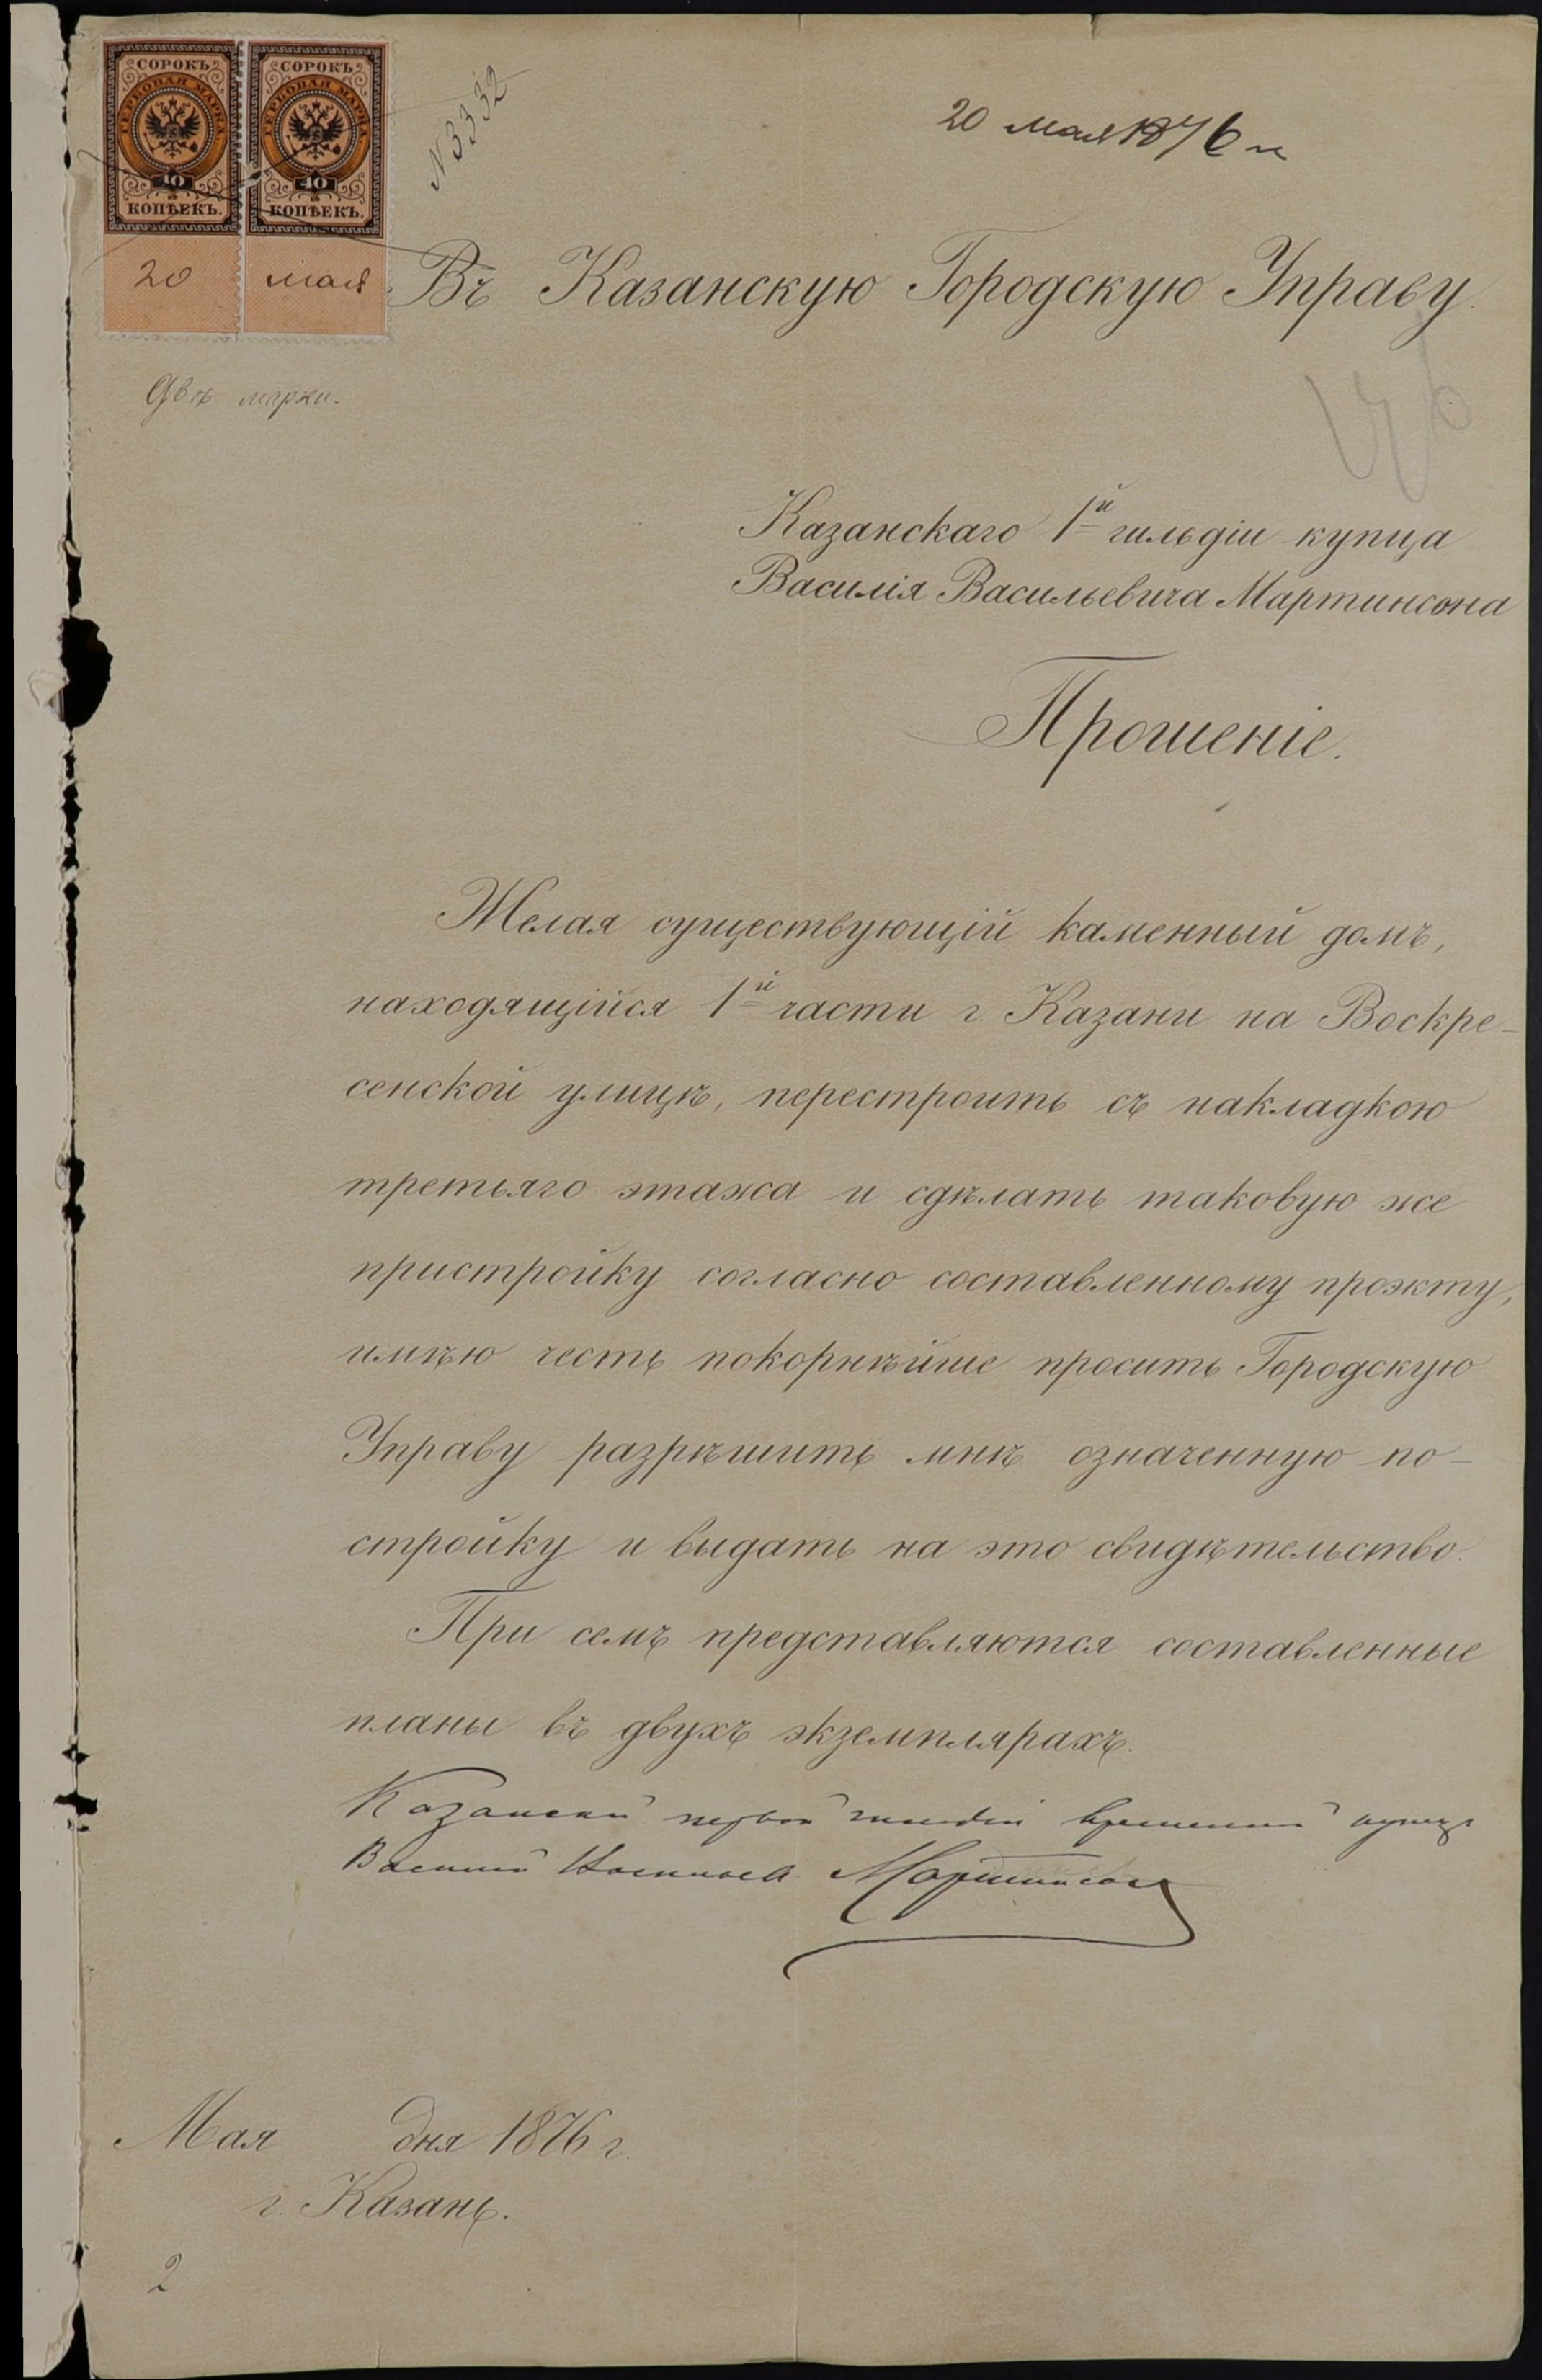 СОРОКЪ СОРОКЪ
ГЕРБОВАЯ МАРКА ГЕРБОВАЯ МАРКА
40 40
КОПѢЕКЪ. КОПѢЕКЪ.
20 мая
N 3332
20 мая 1876 г
Въ Казанскую Городскую Управу.
Двѣ марки.
Казанскаго 1й гильдіи купца
Василія Васильевича Мартинсона
Прошеніе.
Желая существующій каменный домъ,
находящійся 1й части г. Казани на Воскре-
сенской улицѣ, перестроить съ накладкою
третьяго этажа и сдѣлать таковую же
пристройку согласно составленному проэкту,
имѣю честь покорнѣйше просить Городскую
Управу разрѣшить мнѣ означенную по-
стройку и выдать на это свидѣтельство.
При семъ представляются составленные
планы въ двухъ экземплярахъ.
Казанский первой гильдіи временный купецъ
Василий Васильевъ Мартинсон
Мая дня 1876 г.
г. Казань.
2